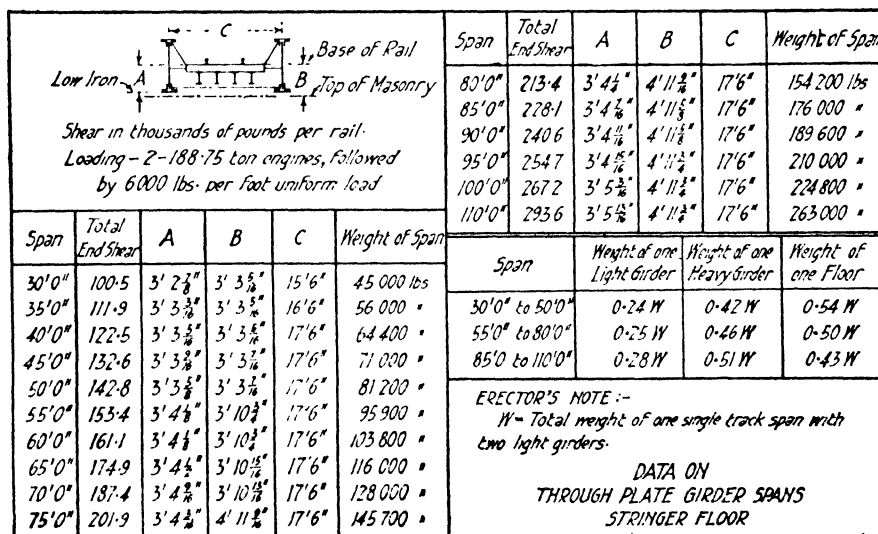 C
Base of Rail
Low Iron
A
B
Top of Masonry
Shear in thousands of pounds per rail.
Loading - 2-188·75 ton engines, followed
by 6000 lbs. per foot uniform load
Span Total End Shear A B C Weight of Span
30'0" 100·5 3' 2 7/8" 3' 3 5/16" 15'6" 45 000 lbs
35'0" 111·9 3' 3 3/16" 3' 3 5/16" 16'6" 56 000 "
40'0" 122·5 3' 3 5/16" 3' 3 5/16" 17'6" 64 400 "
45'0" 132·6 3' 3 9/16" 3' 3 7/16" 17'6" 71 000 "
50'0" 142·8 3' 3 5/8" 3' 3 7/16" 17'6" 81 200 "
55'0" 153·4 3' 4 1/8" 3' 10 3/4" 17'6" 95 900 "
60'0" 161·1 3' 4 1/8" 3' 10 3/4" 17'6" 103 800 "
65'0" 174·9 3' 4 1/2" 3' 10 15/16" 17'6" 116 000 "
70'0" 187·4 3' 4 9/16" 3' 10 15/16" 17'6" 128 000 "
75'0" 201·9 3' 4 3/16" 4' 11 9/16" 17'6" 145 700 "
Span Total End Shear A B C Weight of Span
80'0" 213·4 3' 4 1/4" 4' 11 9/16" 17'6" 154 200 lbs
85'0" 228·1 3' 4 7/16" 4' 11 5/8" 17'6" 176 000 "
90'0" 240 6 3' 4 11/16" 4' 11 5/8" 17'6" 189 600 "
95'0" 254 7 3' 4 15/16" 4' 11 3/4" 17'6" 210 000 "
100'0" 267 2 3' 5 3/16" 4' 11 3/4" 17'6" 224 800 "
110'0" 293 6 3' 5 13/16" 4' 11 3/4" 17'6" 263 000 "
Span Weight of one Light Girder Weight of one Heavy Girder Weight of one Floor
30'0" to 50'0" 0·24 W 0·42 W 0·54 W
55'0" to 80'0" 0·25 W 0·46 W 0·50 W
85'0 to 110'0" 0·28 W 0·51 W 0·43 W
ERECTOR'S NOTE :-
W = Total weight of one single track span with
two light girders.
DATA ON
THROUGH PLATE GIRDER SPANS
STRINGER FLOOR